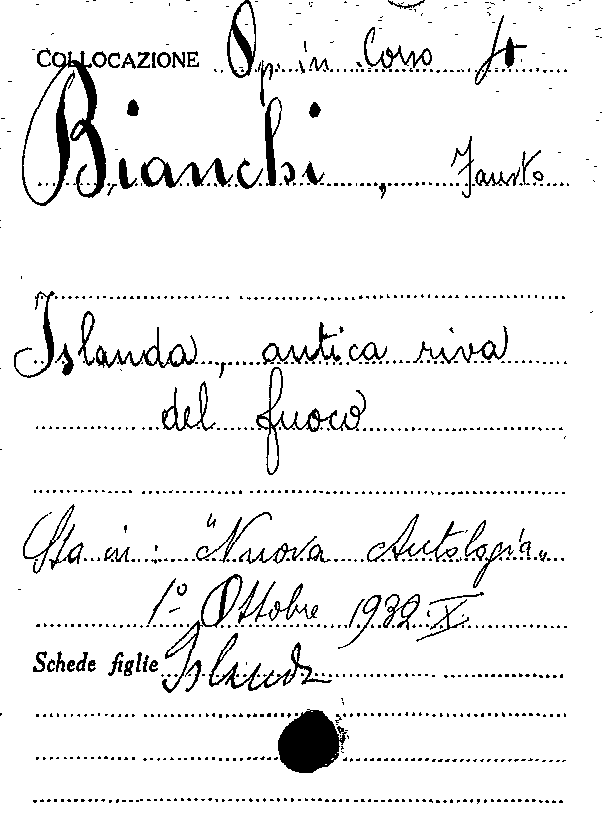 COLLOCAZIONE Op. in Corso St
Bianchi, Fausto
Islanda, antica riva
del fuoco
Sta in: "Nuova Antologia"
1º Ottobre 1932·X
Schede figlie Islanda